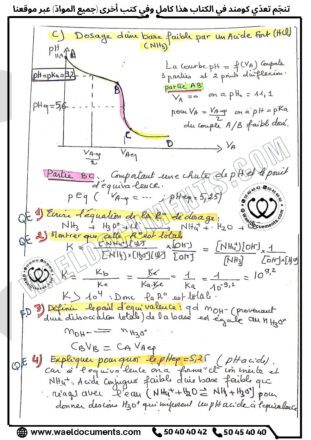 تنجم تعدّي كومند في الكتاب هذا كامل وفي كتب أخرى (جميع المواد) عبر موقعنا
c) Dosage d'une base faible par un Acide Fort (HCl)
(NH3)
pH
La courbe pH = f(VA) comporte
3 parties et 2 points d'inflexion
A
pH = pKa = 9,2
B
partie AB
VA = 0 on a pH0 = 11,1
pour VA = VAeq/2 on a pH = pKa
du couple A/B faible dosé.
pHeq = 5,6
C
D
VAeq/2
VAeq
VA
Partie BC Comportant une chute de pH et le point
d'équivalence.
pEq ( VAeq = ... pHeq = 5,25)
QE 1) Ecrire l'équation de la R° de dosage:
NH3 + H3O+ + Cl- → NH4+ + H2O +
QE 2) Montrer que cette R° est totale
[NH4+][OH-] / [NH3] × 1 / [OH-][H3O+]
K = Kb/Ke = 1/Ka = 10^9,2
K > 10^4. Donc la R° est totale.
3) Définir le point d'équivalence: qd nOH- (provenant
d'une dissociation totale) de la base est égale au nH3O+
nOH- = nH3O+
CBVB = CAVAeq
QE 4) Expliquer pourquoi le pHeq = 5,25 (pH acide).
Car à l'équivalence on a formé Cl- inerte et
NH4+, Acide conjugué faible d'une base faible qui
réagit avec l'eau (NH4+ + H2O ⇌ NH3 + H3O+) pour
donner des ions H3O+ qui imposent un pH acide à l'équivalence
WAELDOCUMENTS.COM
www.waeldocuments.com
50 40 40 42
50 45 40 40